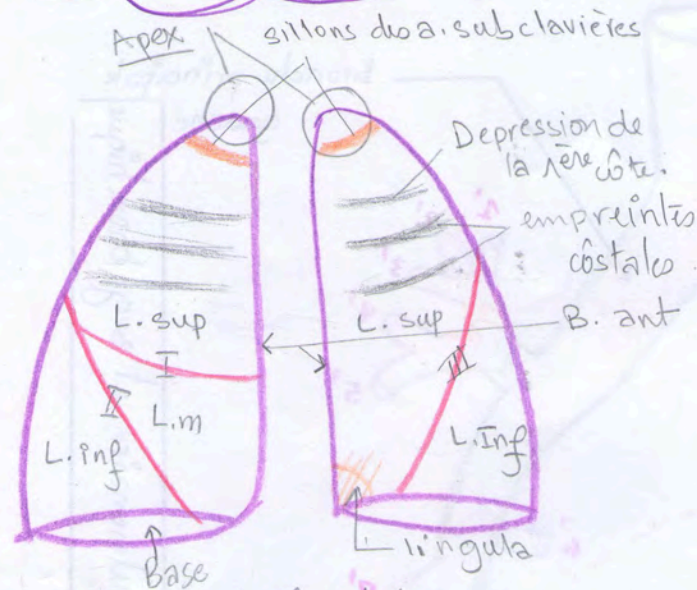 Apex
sillons des a. subclavières
Depression de
la 1ère côte.
empreintes
côstales
L. sup
L. sup
B. ant
I
II
III
L.m
L. inf
L. Inf
lingula
Base